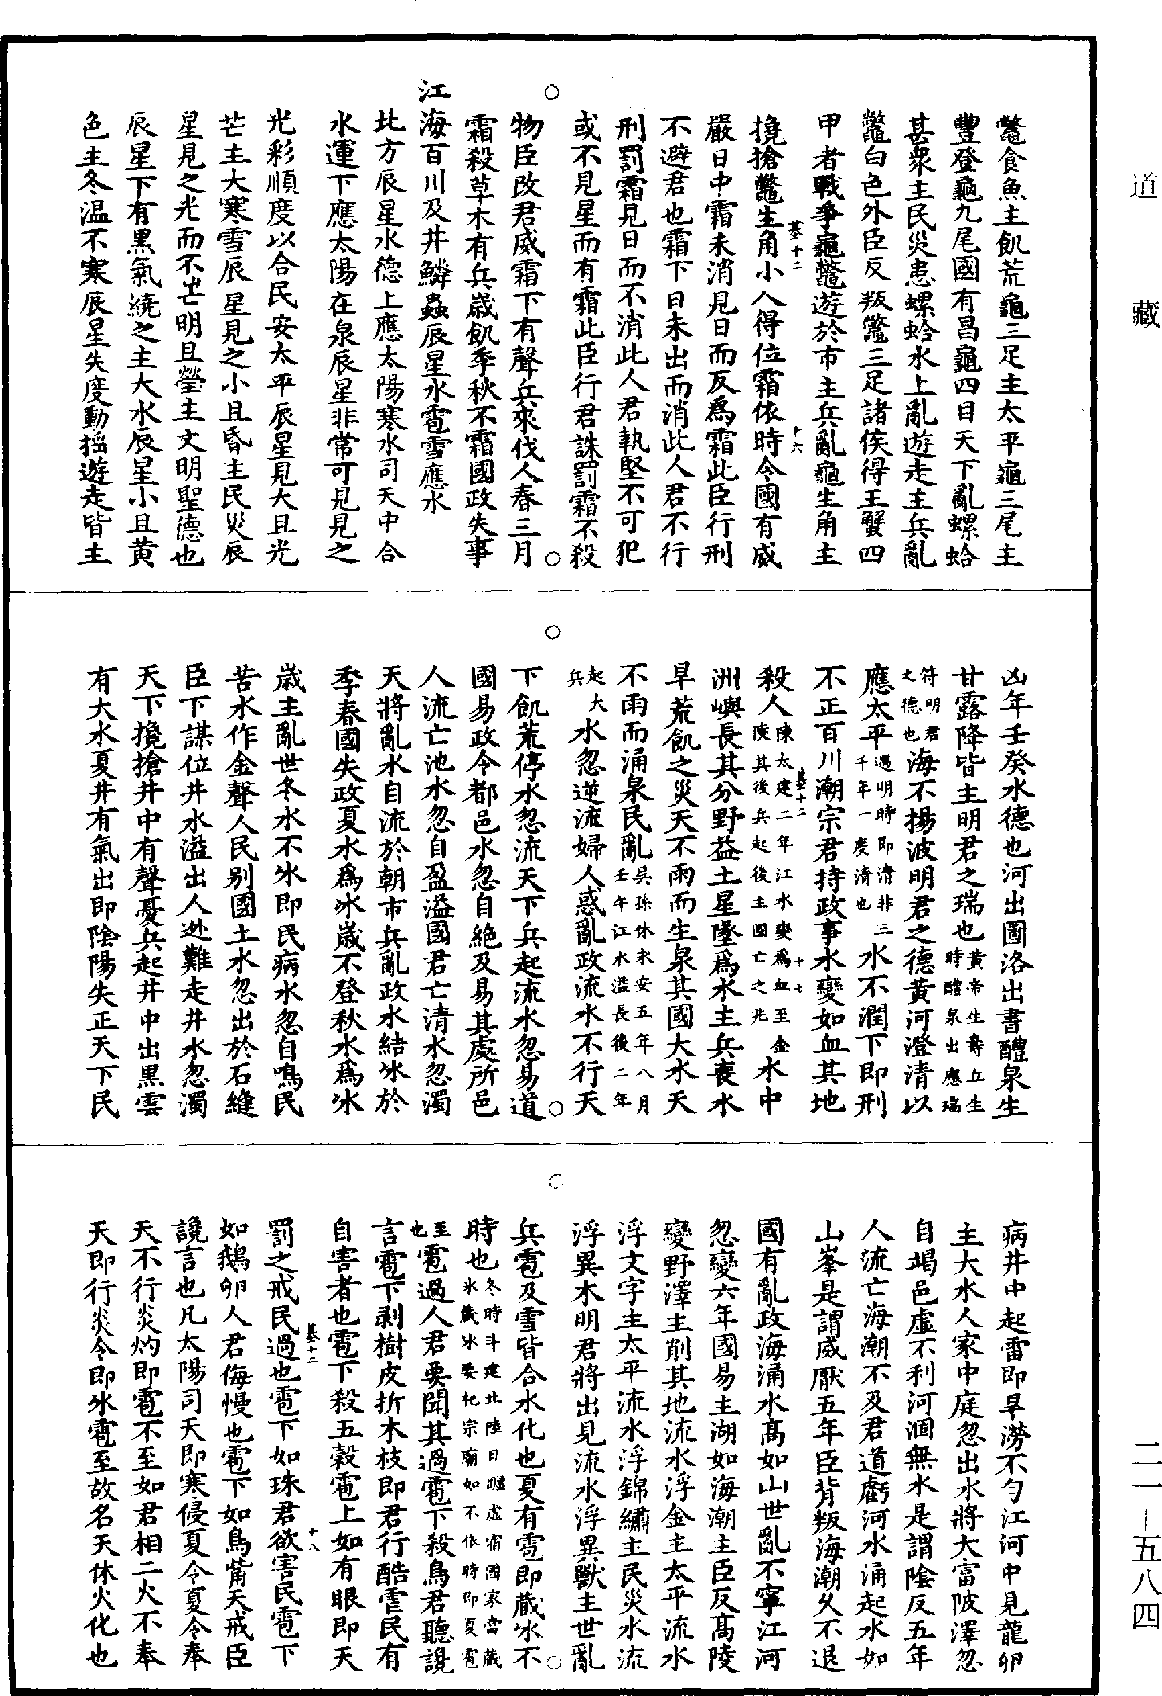 道藏
鼈食魚主飢荒龜三足主太平龜三尾主
豐登龜九尾國有昌龜四目天下亂螺蛤
甚衆主民災患螺蛤水上亂遊走主兵亂
鼈白色外臣反叛鼈三足諸侯得王蟹四
甲者戰爭龜鼈遊於市主兵亂龜生角主
攙搶鼈生角小人得位霜依時令國有威
嚴日中霜未消見日而反爲霜此臣行刑
不避君也霜下日未出而消此人君不行
刑罰霜見日而不消此人君執堅不可犯
或不見星而有霜此臣行君誅罰霜不殺
物臣改君威霜下有聲兵來伐人春三月
霜殺草木有兵歲飢季秋不霜國政失事
江海百川及井鱗蟲辰星水雹雪應水
北方辰星水德上應太陽寒水司天中合
水運下應太陽在泉辰星非常可見見之
光彩順度以合民安太平辰星見大且光
芒主大寒雪辰星見之小且昏主民災辰
星見之光而不芒明且瑩主文明聖德也
辰星下有黑氣繞之主大水辰星小且黃
色主冬温不寒辰星失度動揺遊走皆主
凶年壬癸水德也河出圖洛出書醴泉生
甘露降皆主明君之瑞也黃帝生壽丘生時醴泉出應瑞
符明君之德也海不揚波明君之德黃河澄清以
應太平遇明時即清非三千年一度清也水不潤下即刑
不正百川潮宗君持政事水變如血其地
殺人陳太建二年江水變爲血至金陵其後兵起後主國亡之兆水中
洲嶼長其分野益土星墜爲水主兵喪水
旱荒飢之災天不雨而生泉其國大水天
不雨而涌泉民亂吳孫休永安五年八月壬午江水溢長後二年
起大兵水忽逆流婦人惑亂政流水不行天
下飢荒停水忽流天下兵起流水忽易道
國易政令都邑水忽自絶及易其處所邑
人流亡池水忽自盈溢國君亡清水忽濁
天將亂水自流於朝市兵亂政水結冰於
季春國失政夏水爲冰歲不登秋水爲冰
歲主亂世冬水不冰即民病水忽自鳴民
苦水作金聲人民别國土水忽出於石縫
臣下謀位井水溢出人逃難走井水忽濁
天下攙搶井中有聲憂兵起井中出黑雲
有大水夏井有氣出即陰陽失正天下民
病井中起雷即旱澇不勻江河中見龍卵
主大水人家中庭忽出水將大富陂澤忽
自竭邑虛不利河涸無水是謂陰反五年
人流亡海潮不及君道虧河水涌起水如
山峯是謂威厭五年臣背叛海潮久不退
國有亂政海涌水高如山世亂不寧江河
忽變六年國易主湖如海潮主臣反高陵
變野澤主削其地流水浮金主太平流水
浮文字主太平流水浮錦繡主民災水流
浮異木明君將出見流水浮異獸主世亂
兵雹及雪皆合水化也夏有雹即藏冰不
時也冬時斗建北陸日躔虛宿國家當藏冰藏冰要祀宗廟如不依時即夏雹
至也雹過人君要聞其過雹下殺鳥君聽讒
言雹下剥樹皮折木枝即君行酷虐民有
自害者也雹下殺五穀雹上如有眼即天
罰之戒民過也雹下如珠君欲害民雹下
如鵝卵人君侮慢也雹下如鳥觜天戒臣
讒言也凡太陽司天即寒侵夏令夏令奉
天不行炎灼即雹不至如君相二火不奉
天即行炎令即氷雹至故名天休火化也
基十二
十六
基十二
十七
基十二
十八
二一－五八四